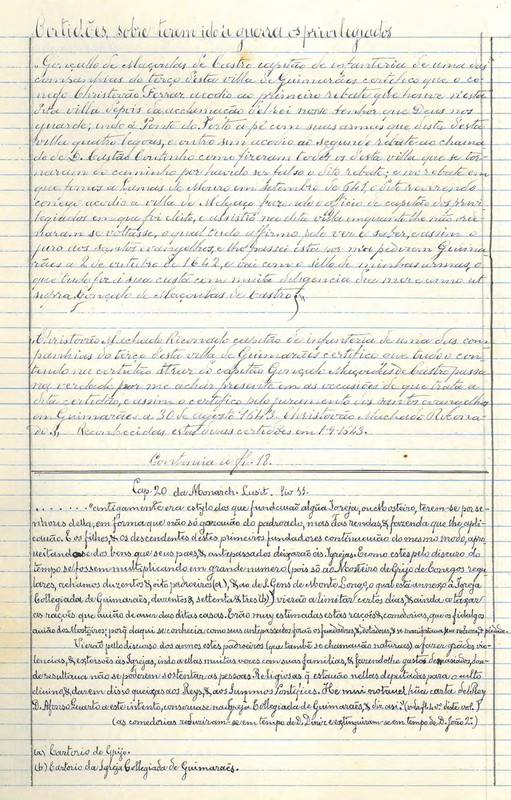 Certidões, sobre terem ido á guerra os privilegiados
Gonçallo de Maçoulas de Castro capitão de infanteria de uma das
companhias do terço desta villa de Guimarães certefico que o co-
nego Christovão Ferraz acodio ao primeiro rebate que houve nesta
dita villa depois da acclamação d'elrei nosso senhor que Deus nos
guarde, indo á Ponte do Porto a pé com suas armas que dista desta
villa quatro legoas, e outro sim acodio ao segundo rebate ao chama
do de D. Gastão Coutinho como fizeram todos os desta villa que se tor-
naram do caminho por havido ser falso o dito rebate; e no rebate em
que fomos a Lamas de Mouro em setembro de 641, o dito reverendo
conego acodio a villa de Melgaço para onde o officio de capitão dos privi-
legiados em que foi eleito, e assistio na dita villa emquanto lhe não orde-
naram se voltasse, o qual tudo affirmo pelo ver e saber, e assim o
juro aos santos evangelhos, e lhe passei esta por m'a pedir em Guima-
rães a 2 de outubro de 1642, e vai com o sello de minhas armas, o
que tudo foi á sua custa com muita diligencia dia mez e anno ut
supra, Gonçalo de Maçoulas de Castro
Christovão Machado Riconado capitão de infanteria de uma das com
panhias do terço desta villa de Guimarães certifico que tudo o con-
teudo na certidão atraz do capitão Gonçalo Maçoulas de Castro passa
na verdade por me achar presente em as occasiões de que trata a
dita certidão, e assim o certifico pelo juramento dos santos evangelhos
em Guimarães a 30 de agosto 1643. Christovão Machado Ricona-
do. Reconhecidas estas duas certidões em 1-9-1643.
Continúa a fl. 18.
Cap. 20 da Monarch. Lusit. Liv 55.
. . . . . . . "antigamente era estylo dos que fundauão algũa Igreja, ou Mosteiro, terem-se por se-
nhores della; em forma que não só gozauão do padroado, mas das rendas, & fazenda que lhe apli-
cauão. E os filhos, & os descendentes destes primeiros fundadores continuauão do mesmo modo, apro-
ueitandose dos bens que seus paes, & antepassados deixarão ás Igrejas. E como estes pelo discurso do
tempo se fossem multiplicando em grande numero (pois só ao Mosteiro de Grijo de Conegos regu
lares, achamos duzentos, & oito padroeiros (a), & ao de S. Gens de Monte Longo, o qual esta annexo á Igreja
Collegiada de Guimarães, duzentos, & settenta & tres (b)) vierão a limitar certos dias, & ainda a taxar
as rações que auião de auer das ditas casas. Erão muy estimadas estas rações, & comedorias, que os fidalgos
auião dos Mosteiros: porq̃ daqui se conhecia como seus antepassados forão os fundadores, & dotadores
Vierão pello discurso dos annos estes padroeiros (que tambẽ se chamauão naturaes) a fazer grãdes vio-
lencias, & extorsões ás Igrejas, indo a ellas muitas vezes com suas familias, & fazendolhe gastos demasiados, don-
de resultaua não se poderem sostentar as pessoas Religiosas q̃ estauão nellas deputadas para o culto
diuino, & darem disso queixas aos Reys, & aos Summos Pontifices. He mui notauel hũa carta del Rey
D. Afonso Quarto a este intento, conserua se na Igreja Collegiada de Guimarães, & diz assi:" (vide fl. 4 vº deste vol.)
(as comedorias reduziram-se em tempo de D. Diniz e extinguiram-se em tempo de D. João 2º.)
(a) Cartorio de Grijo.
(b) Cartorio da Igreja Collegiada de Guimarães.